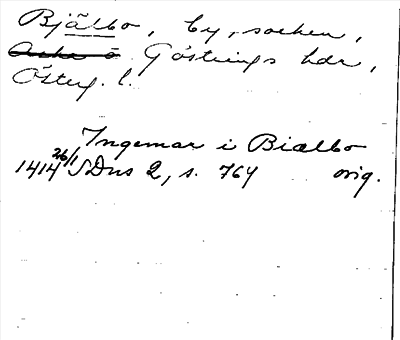 Bjälbo, by, socken,
Göstrings hdr,
Österg. l.
Ingemar i Biælbo
1414 26/1 SDns 2, s. 764 orig.